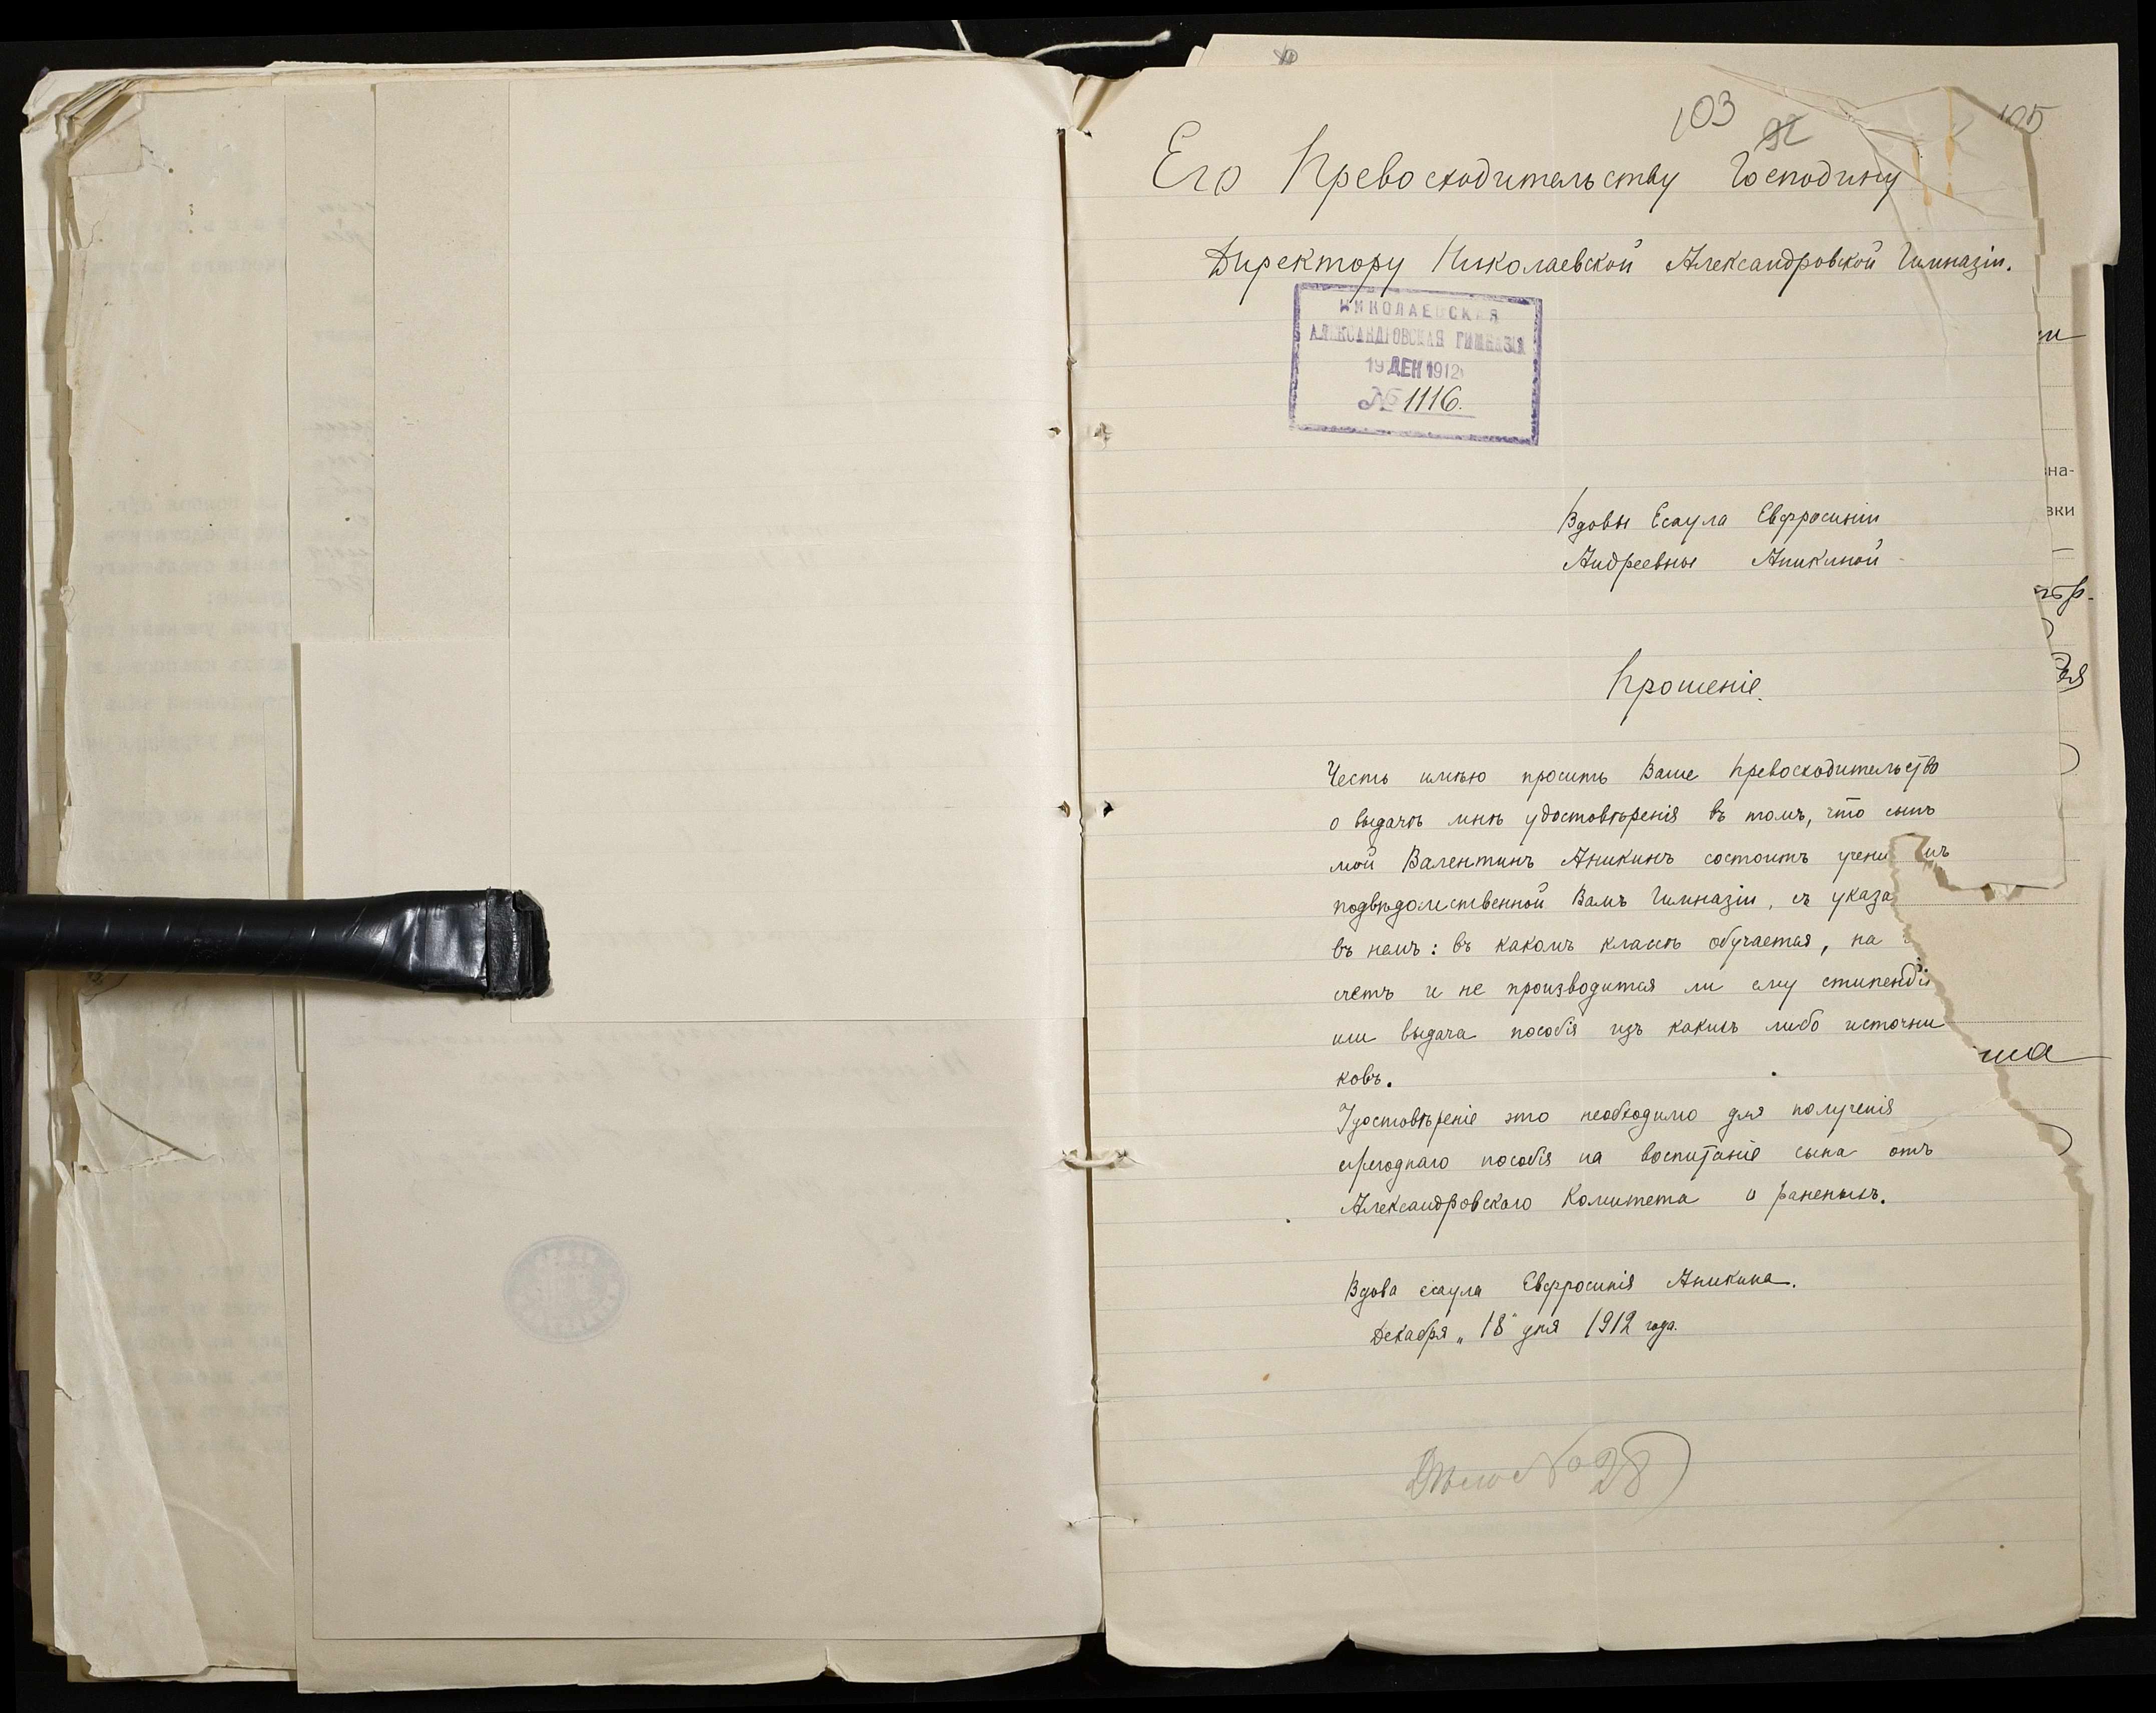 103
92
105
Его Превосходительству Господину
Директору Николаевской Александровской Гимназіи.
НИКОЛАЕВСКАЯ
АЛЕКСАНДРОВСКАЯ ГИМНАЗІЯ
19 ДЕК 1912
№ 1116.
Вдовы Есаула Евфросиніи
Андреевны Аникиной
Прошеніе.
Честь имѣю просить Ваше Превосходительство
о выдачѣ мнѣ удостовѣренія въ томъ, что сынъ
мой Валентинъ Аникинъ состоитъ учени
подвѣдомственной Вамъ Гимназіи, съ указа
въ немъ: въ какомъ классѣ обучается, на
счетъ и не производится ли ему стипендія
или выдача пособія изъ какихъ либо источни
ковъ.
Удостовѣреніе это необходимо для полученія
пособія на воспитаніе сына отъ
Александровскаго Комитета о раненыхъ.
Вдова есаула Евфросинія Аникина.
Декабря „18" дня 1912 года.
Дѣло № 28
на-
вки